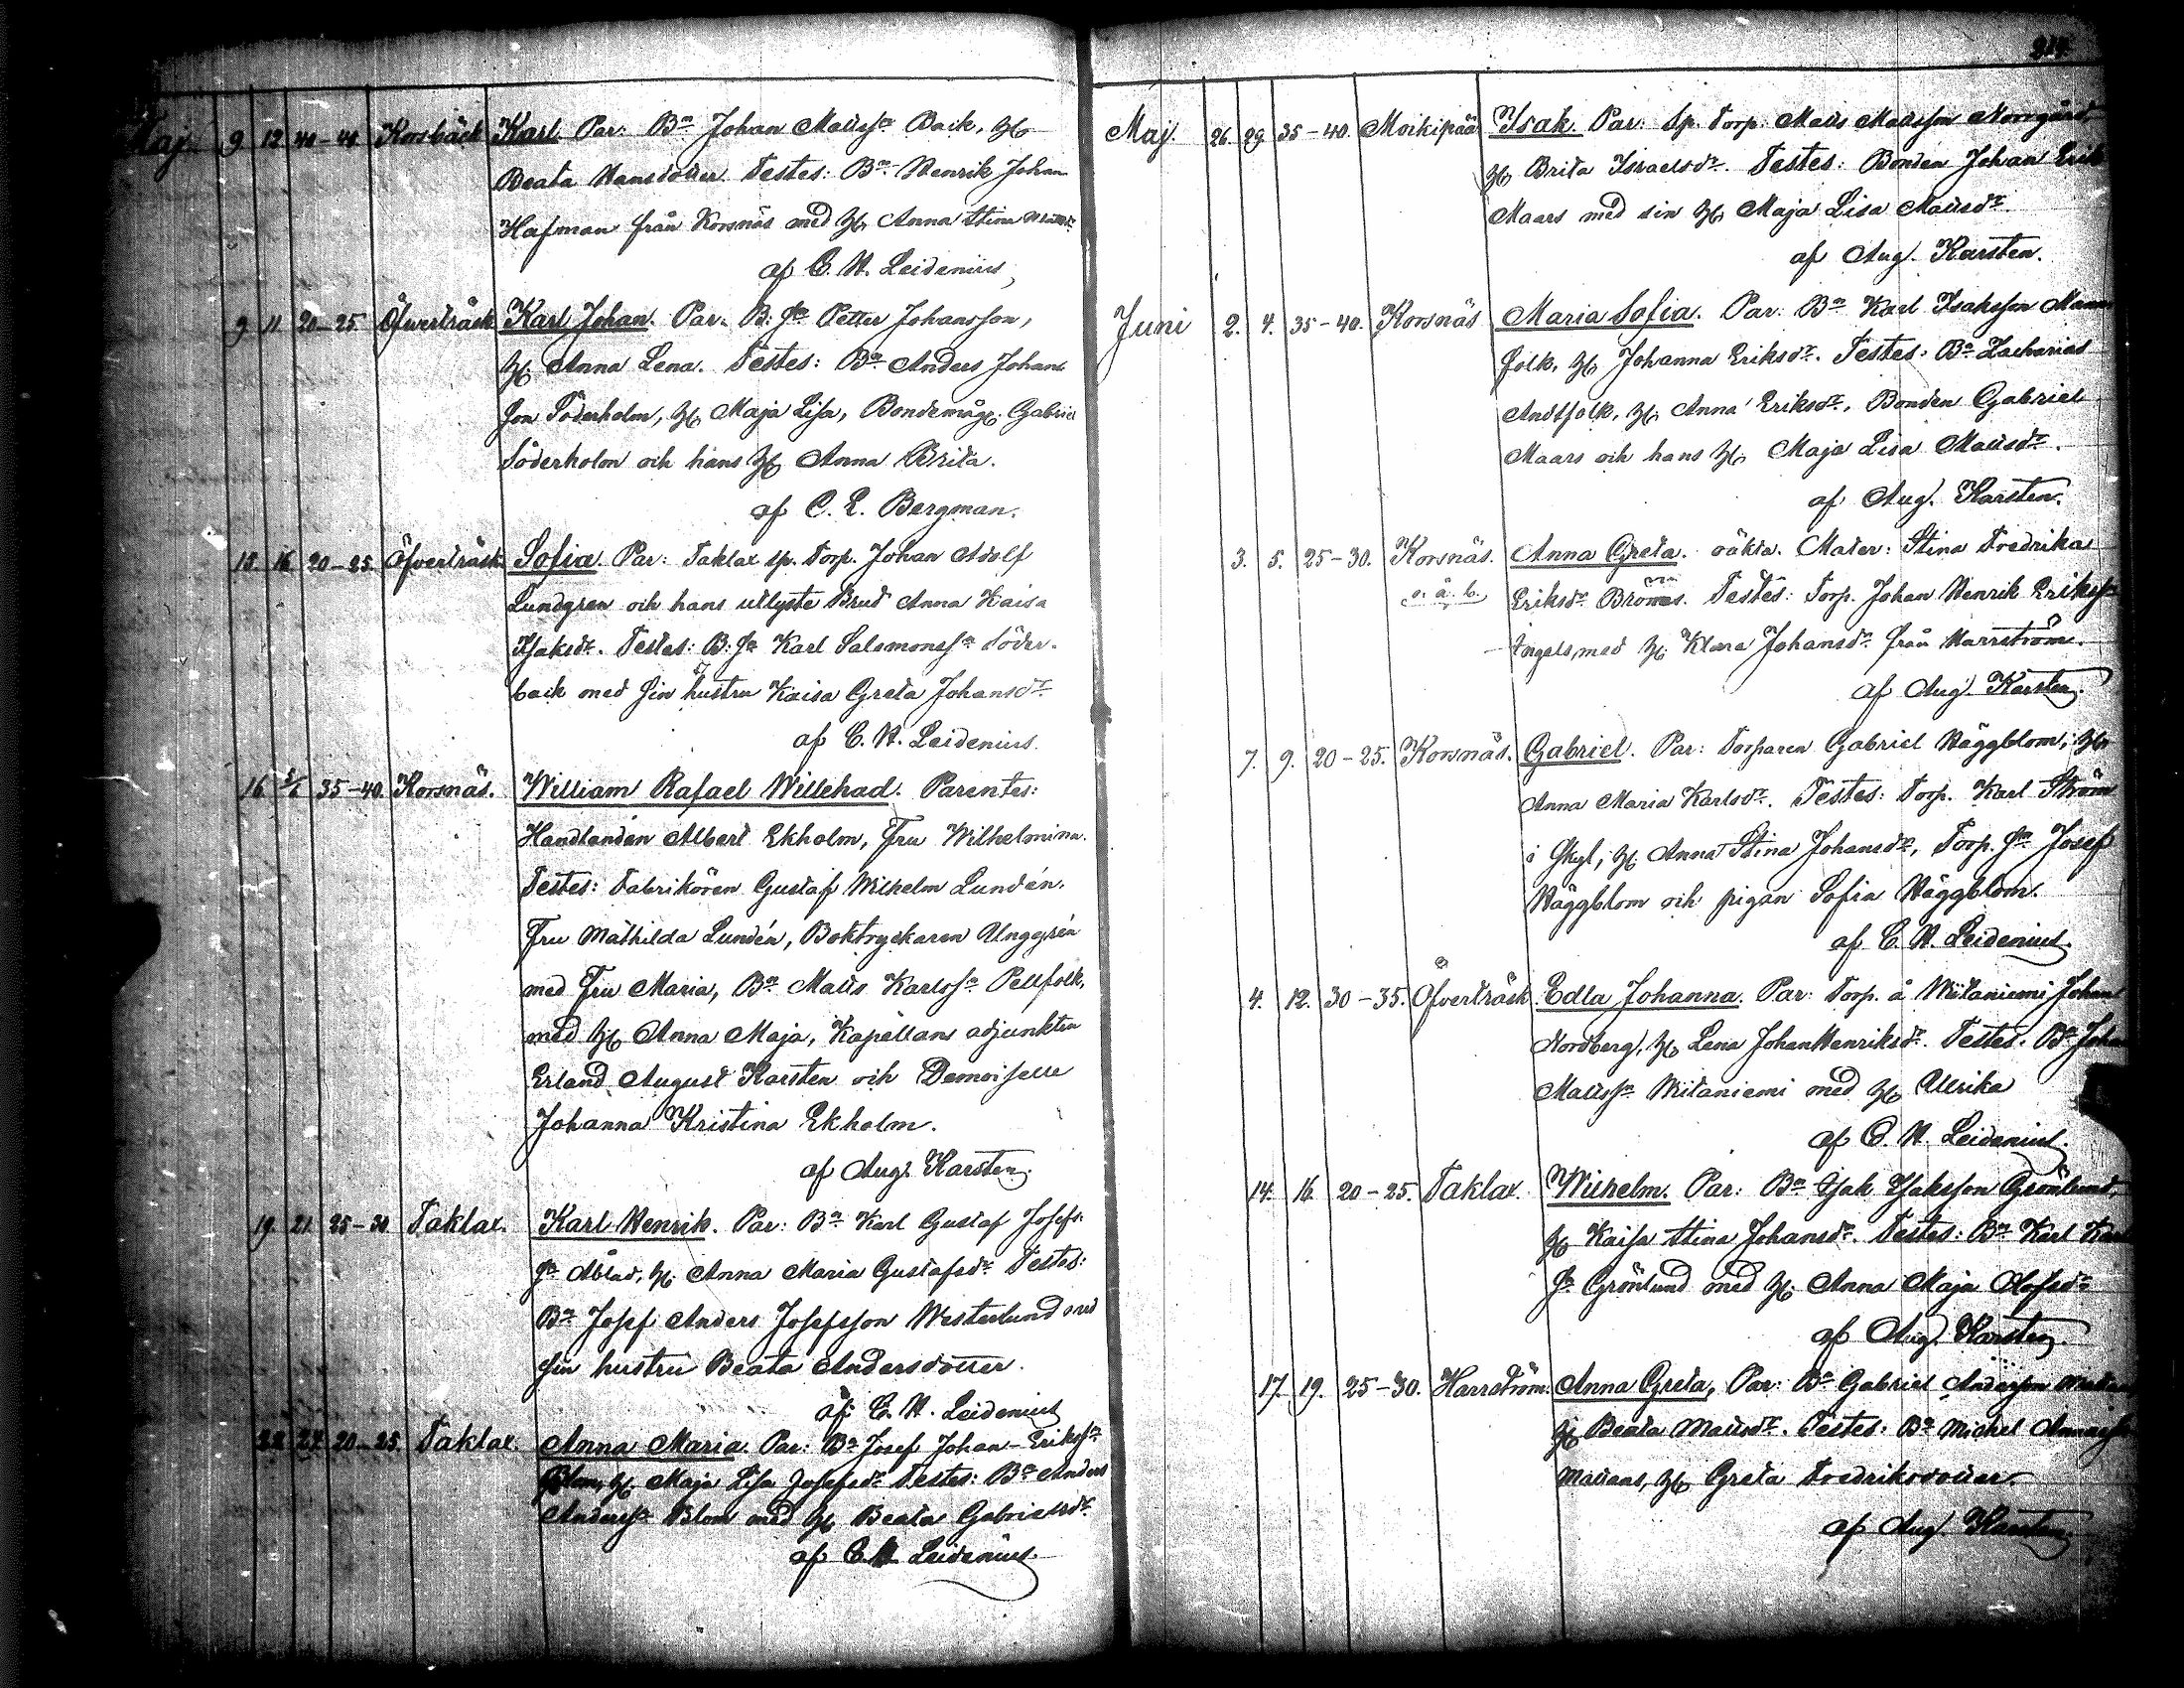 Maj. 9 12 40-45 Korsbäck Karl. Par: Bn Johan Matssn Back, H.
Beata Hansdotter Testes: Bn Henrik Johan
Hafman från Korsnäs med H. Anna Stina
af C. H. Leidenius,
9 11 20-25 Öfverträsk Karl Johan. Par: B: sn Petter Johansson,
H. Anna Lena. Testes: Bn Anders Johans
son Söderholm, H. Maja Lisa, Bondemåg. Gabriel
Söderholm och hans H. Anna Brita.
af C. E. Bergman.
15. 16 20-25 Öfverträsk Sofia. Par: Taklax sp. Torp. Johan Adolf
Lundgren och hans utlyste Brud Anna Kaisa
Isaksdr. Testes: B: sn Karl Salomonssn Söder-
back med sin hustru Kaisa Greta Johansdr
af C. H. Leidenius.
16 35-40. Korsnäs. William Rafael Willehad. Parentes:
Handlanden Albert Ekholm, Fru Wilhelmina.
Testes: Fabrikören Gustaf Wilhelm Lundén.
Fru Mathilda Lundén, Boktryckaren Unggrén
med Fru Maria, Bn Matts Karlssn Pellfolk,
med H. Anna Maja, Kapellans adjunkten
Erland August Karsten och Demoiselle
Johanna Kristina Ekholm.
af Aug. Karsten.
19. 21. 25-30 Taklax. Karl Henrik. Par: Bn Karl Gustaf Josefs-
sn Åbrad, H. Anna Maria Gustafsdr Testes:
Bn Josef Anders Josefsson Westerlund med
sin hustru Beata Andersdotter.
af C. H. Leidenius
22 27 20-25. Taklax. Anna Maria. Par: Bn Josef Johan-Erikssn
Blom, H. Maja Lisa Josefsdr Testes: Bn Anders
Anderssn Blom med H. Beata Gabrielsdr.
af C. H. Leidenius.
214.
Maj. 26. 29. 35-40. Moikipää Isak. Par: Sp. Torp. Matts Mattsson Norrgård,
H. Brita Israelsdr. Testes: Bonden Johan Erik
Maars med sin H. Maja Lisa Mattsdr.
af Aug. Karsten.
Juni 2. 4. 35-40. Korsnäs Maria Sofia. Par: Bn Karl Isaksson Mann
folk, H. Johanna Eriksdr. Testes: Bn Zacharias
Andtfolk, H. Anna Eriksdr, Bonden Gabriel
Maars och hans H. Maja Lisa Mattsdr.
af Aug. Karsten.
3. 5. 25-30. Korsnäs. Anna Greta. oäkta. Mater: Stina Fredrika
o. ä. b. Eriksdr Brömes. Testes: Torp. Johan Henrik Erikssn
Ingels, med H. Klara Johansdr från Harrström.
af Aug. Karsten.
7. 9. 20-25. Korsnäs. Gabriel. Par: Torparen Gabriel Häggblom, H.
Anna Maria Karlsdr. Testes: Torp. Karl Ström
i H. Anna Stina Johansdr, Torp. sn Josef
Häggblom och pigan Sofia Häggblom.
af C. H. Leidenius.
4. 12. 30-35. Öfverträsk. Edla Johanna. Par: Torp. å Miitaniemi Johan
Nordberg, H. Lena Johan Henriksdr. Testes. Bn Johan
Matssn Miitaniemi med H. Ulrika
af C. H. Leidenius.
14. 16. 20-25. Taklax. Wilhelm. Par: Bn Isak Isaksson Grönlund,
H. Kaisa Stina Johansdr. Testes: Bn Karl Karl
sn Grönlund med H. Anna Maja Olofsdr
af Aug. Karsten.
17. 19. 25-30. Harrström. Anna Greta, Par: Bn Gabriel Andersson
H. Beata Mattsdr. Testes: Bn Michel
Mattans, H. Greta Fredriksdotter.
af Aug. Karsten.